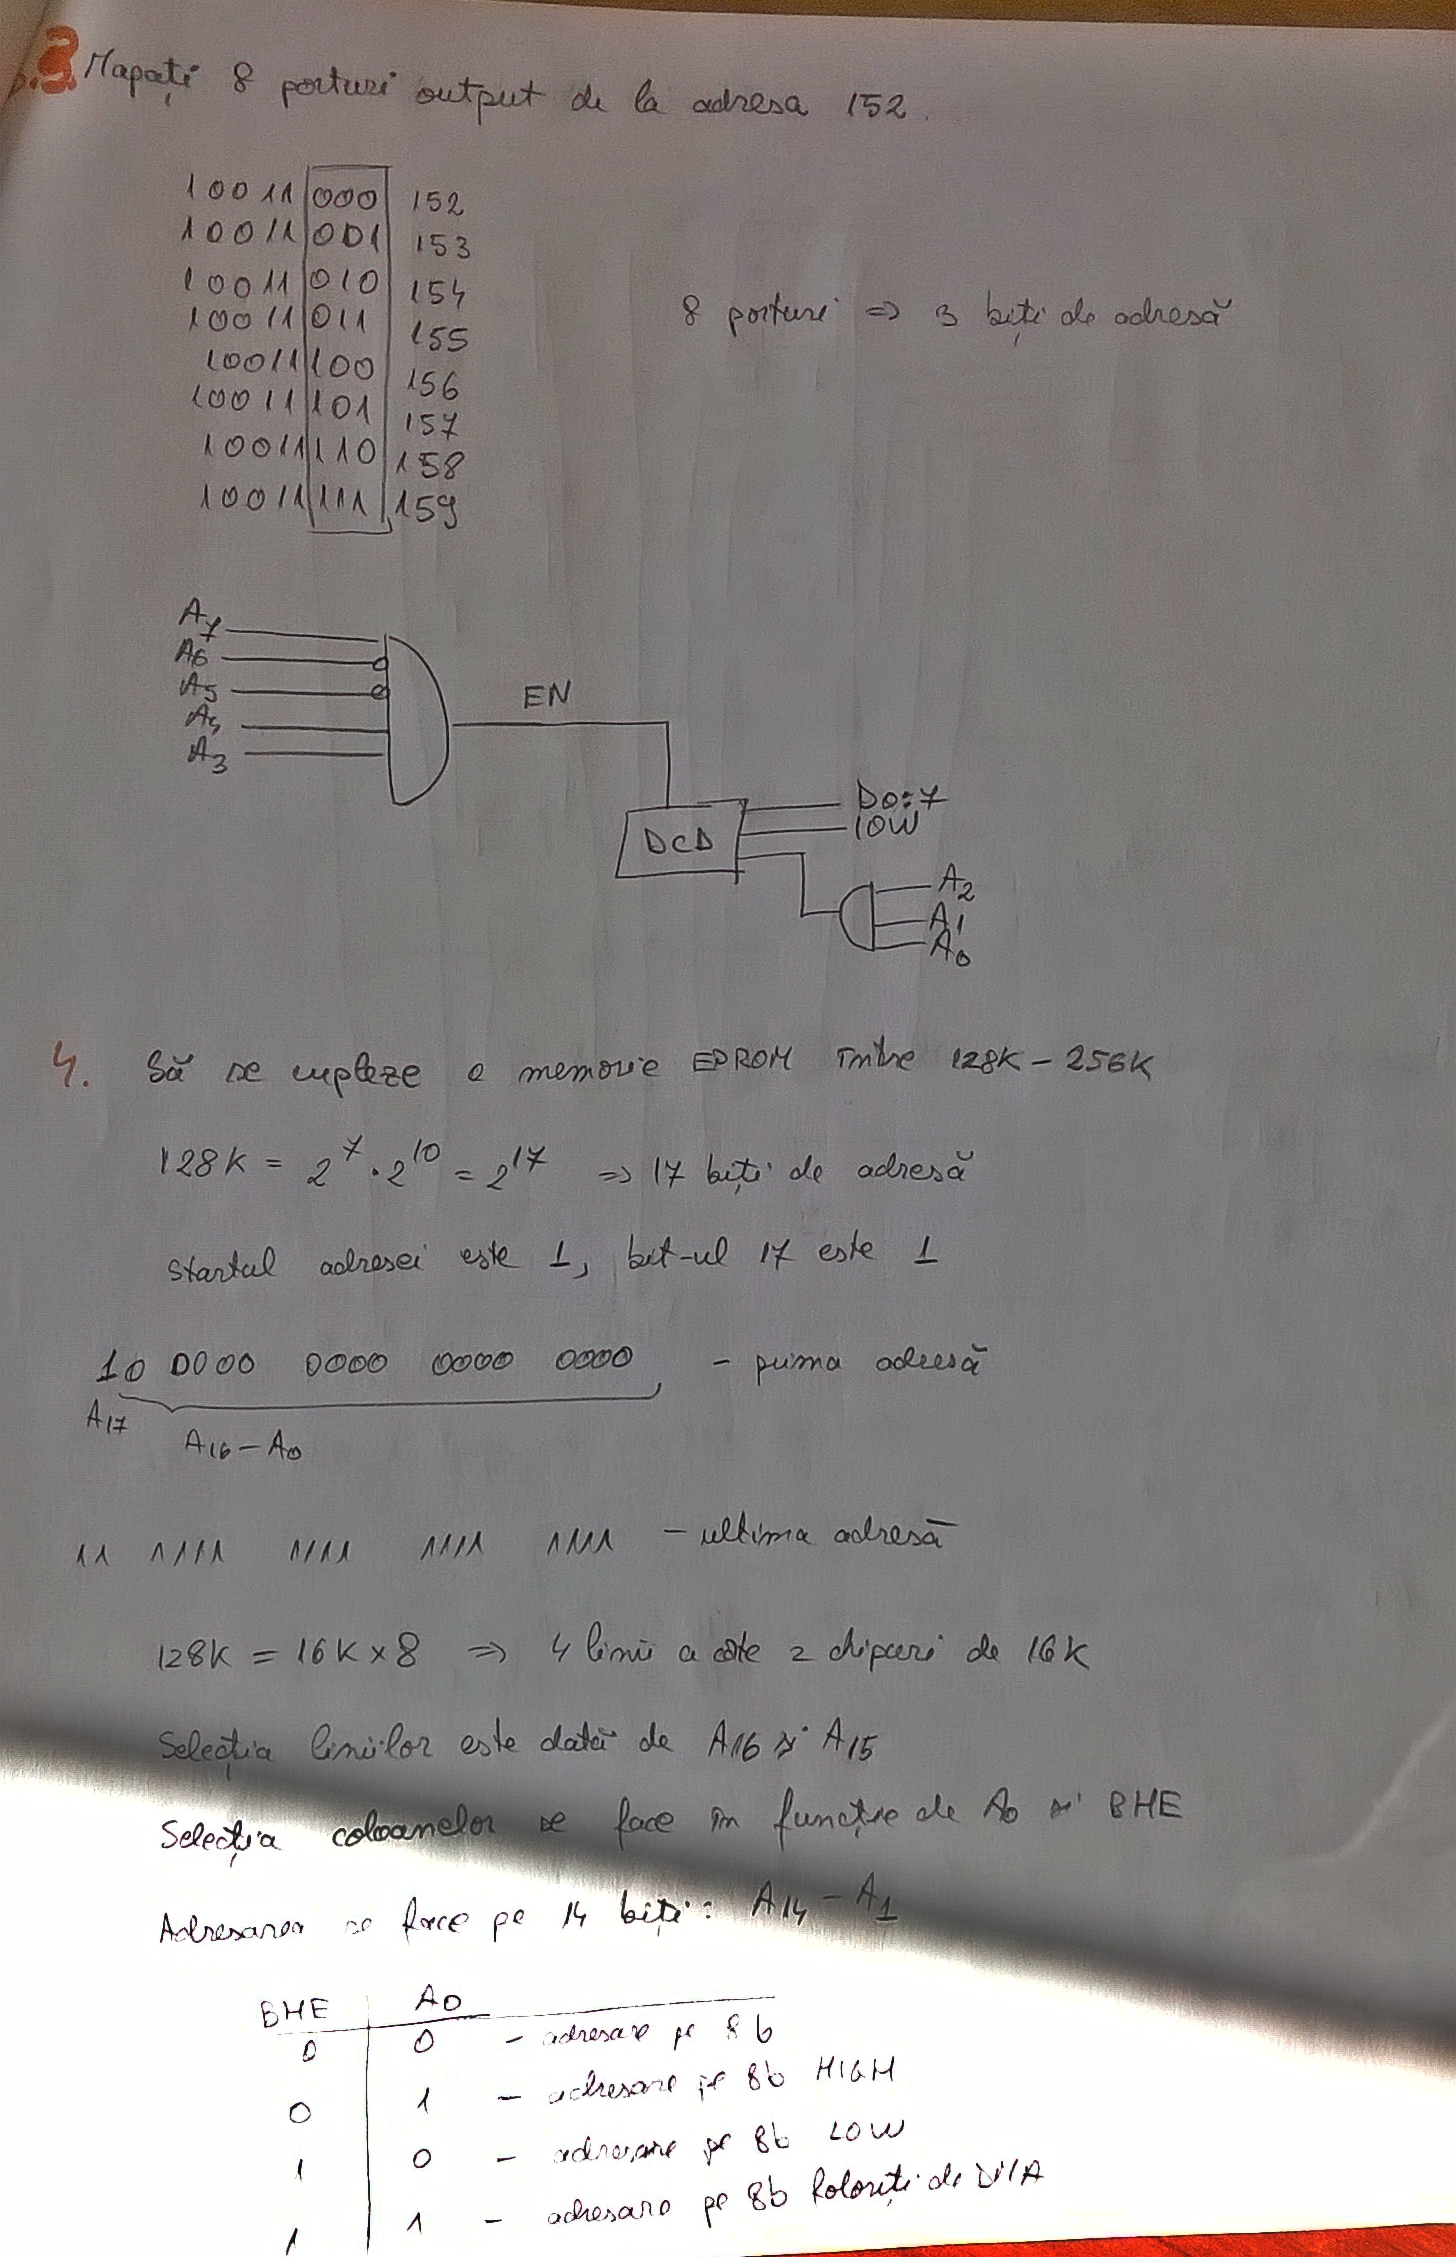 3. Mapați 8 porturi output de la adresa 152.
10011 000 152
10011 001 153
10011 010 154
10011 011 155
10011 100 156
10011 101 157
10011 110 158
10011 111 159
8 porturi => 3 biți de adresă
A7
A6
A5
A4
A3
EN
DCD
D0:7
IOW
A2
A1
A0
4. Să se cupleze o memorie EPROM între 128K - 256K
128K = 2^7 . 2^10 = 2^17 => 17 biți de adresă
Startul adresei este 1, bit-ul 17 este 1
10 0000 0000 0000 0000 - prima adresă
A17
A16 - A0
11 1111 1111 1111 1111 - ultima adresă
128K = 16K x 8 => 4 linii a câte 2 chipuri de 16K
Selecția liniilor este dată de A16 și A15
Selecția coloanelor se face în funcție de A0 și BHE
Adresarea se face pe 14 biți: A14 - A1
BHE A0
0 0 - adresare pe 8b
0 1 - adresare pe 8b HIGH
1 0 - adresare pe 8b LOW
1 1 - adresare pe 8b folosiți de